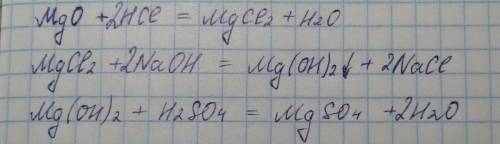 MgO + 2HCl = MgCl2 + H2O
MgCl2 + 2NaOH = Mg(OH)2↓ + 2NaCl
Mg(OH)2 + H2SO4 = MgSO4 + 2H2O